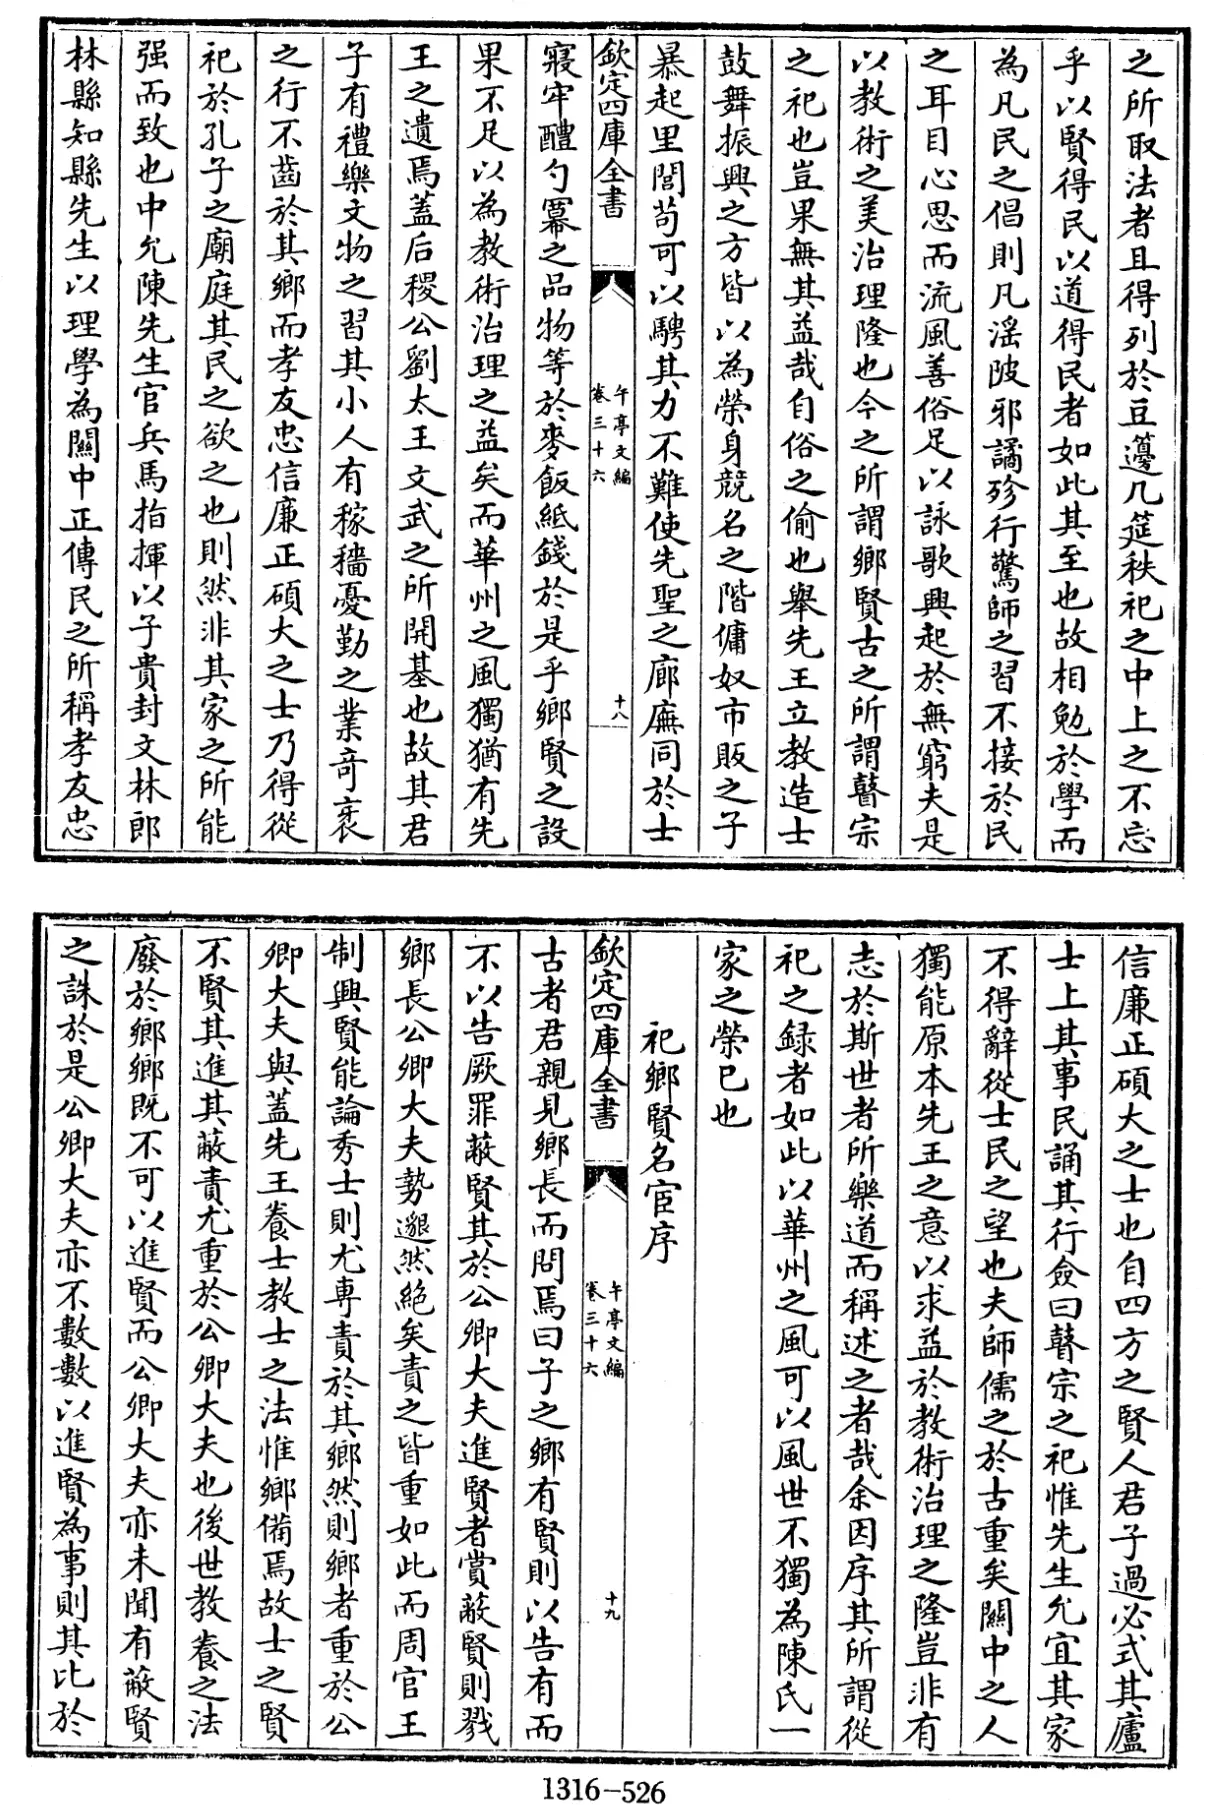 之所取法者且得列於豆籩几筵秩祀之中上之不忘
乎以賢得民以道得民者如此其至也故相勉於學而
為凡民之倡則凡滛陂邪譎殄行驚師之習不接於民
之耳目心思而流風善俗足以詠歌興起於無窮夫是
以教術之美治理隆也今之所謂鄉賢古之所謂瞽宗
之祀也豈果無其益哉自俗之偷也舉先王立教造士
鼓舞振興之方皆以為榮身競名之階傭奴市販之子
暴起里閭苟可以騁其力不難使先聖之廊廡同於士
欽定四庫全書
午亭文編
卷三十六
十八
寢牢醴勺羃之品物等於麥飯紙錢於是乎鄉賢之設
果不足以為教術治理之益矣而華州之風獨猶有先
王之遺焉蓋后稷公劉太王文武之所開基也故其君
子有禮樂文物之習其小人有稼穡憂勤之業竒衺
之行不齒於其鄉而孝友忠信廉正碩大之士乃得從
祀於孔子之廟庭其民之欲之也則然非其家之所能
强而致也中允陳先生官兵馬指揮以子貴封文林郎
林縣知縣先生以理學為關中正傳民之所稱孝友忠
信廉正碩大之士也自四方之賢人君子過必式其廬
士上其事民誦其行僉曰瞽宗之祀惟先生允宜其家
不得辭從士民之望也夫師儒之於古重矣關中之人
獨能原本先王之意以求益於教術治理之隆豈非有
志於斯世者所樂道而稱述之者哉余因序其所謂從
祀之録者如此以華州之風可以風世不獨為陳氏一
家之榮已也
祀鄉賢名宦序
欽定四庫全書
午亭文編
卷三十六
十九
古者君親見鄉長而問焉曰子之鄉有賢則以告有而
不以告厥罪蔽賢其於公卿大夫進賢者賞蔽賢則戮
鄉長公卿大夫勢邈然絶矣責之皆重如此而周官王
制興賢能論秀士則尤專責於其鄉然則鄉者重於公
卿大夫與蓋先王養士教士之法惟鄉備焉故士之賢
不賢其進其蔽責尤重於公卿大夫也後世教養之法
廢於鄉鄉既不可以進賢而公卿大夫亦未聞有蔽賢
之誅於是公卿大夫亦不數數以進賢為事則其比於
1316-526